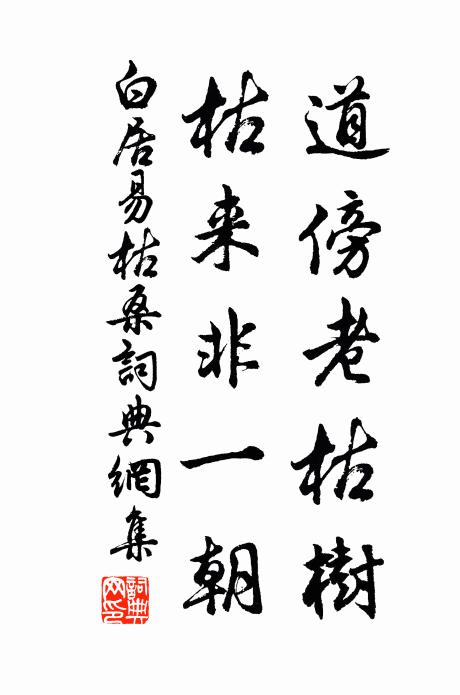 道傍老枯樹
枯来非一朝
白居易枯桑詞典網集
詞典網印